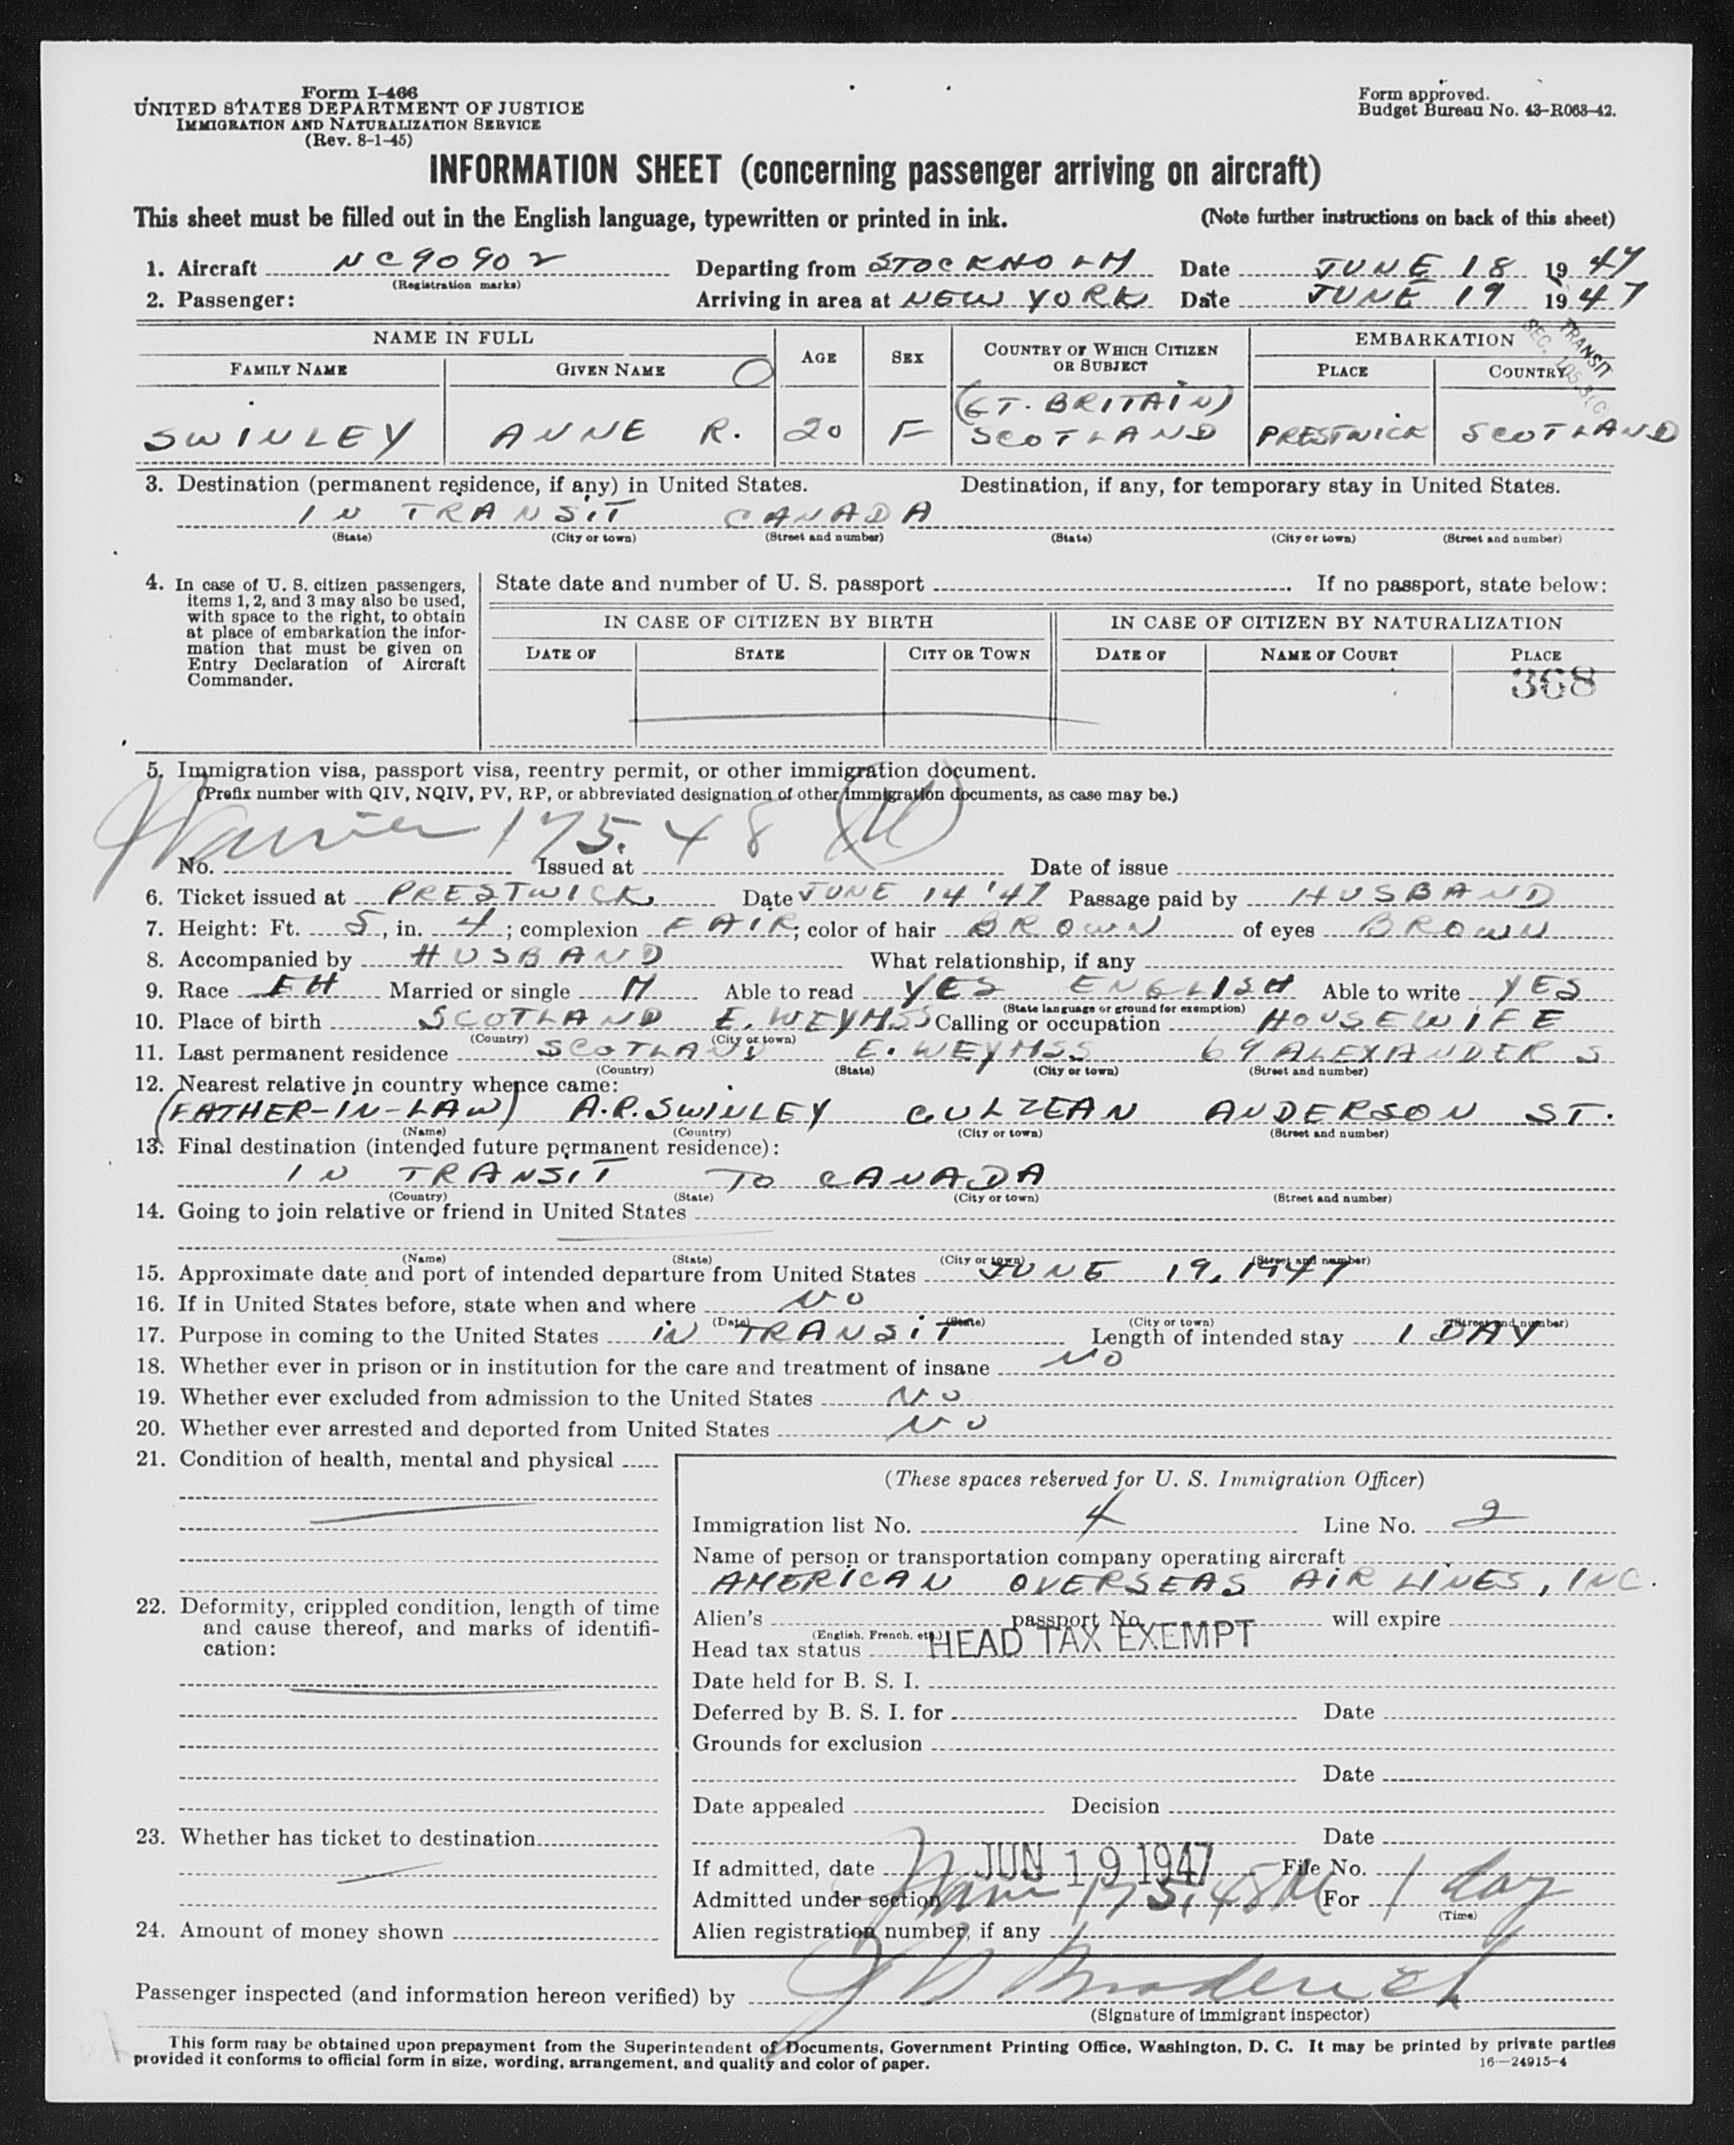 Form I-466
UNITED STATES DEPARTMENT OF JUSTICE
IMMIGRATION AND NATURALIZATION SERVICE
(Rev. 8-1-45)
Form approved.
Budget Bureau No. 43-R063-42.
INFORMATION SHEET (concerning passenger arriving on aircraft)
This sheet must be filled out in the English language, typewritten or printed in ink. (Note further instructions on back of this sheet)
1. Aircraft NC90902 Departing from STOCKHOLM Date JUNE 18 1947
(Registration marks)
2. Passenger: Arriving in area at NEW YORK Date JUNE 19 1947
TRANSIT
SEC.
NAME IN FULL AGE SEX COUNTRY OF WHICH CITIZEN OR SUBJECT EMBARKATION
FAMILY NAME GIVEN NAME PLACE COUNTRY
(GT. BRITAIN)
SWINLEY ANNE R. 20 F SCOTLAND PRESTWICK SCOTLAND
3. Destination (permanent residence, if any) in United States. Destination, if any, for temporary stay in United States.
IN TRANSIT CANADA
(State) (City or town) (Street and number) (State) (City or town) (Street and number)
4. In case of U. S. citizen passengers, items 1, 2, and 3 may also be used, with space to the right, to obtain at place of embarkation the information that must be given on Entry Declaration of Aircraft Commander.
State date and number of U. S. passport . If no passport, state below:
IN CASE OF CITIZEN BY BIRTH IN CASE OF CITIZEN BY NATURALIZATION
DATE OF STATE CITY OR TOWN DATE OF NAME OF COURT PLACE
368
5. Immigration visa, passport visa, reentry permit, or other immigration document.
(Prefix number with QIV, NQIV, PV, RP, or abbreviated designation of other immigration documents, as case may be.)
175.48
No. Issued at Date of issue
6. Ticket issued at PRESTWICK Date JUNE 14 '47 Passage paid by HUSBAND
7. Height: Ft. 5, in. 4; complexion FAIR; color of hair BROWN of eyes BROWN
8. Accompanied by HUSBAND What relationship, if any
9. Race EH Married or single M Able to read YES ENGLISH Able to write YES
(State language or ground for exemption)
10. Place of birth SCOTLAND E. WEYMSS Calling or occupation HOUSEWIFE
(Country) (City or town)
11. Last permanent residence SCOTLAND E. WEYMSS 69 ALEXANDER S
(Country) (State) (City or town) (Street and number)
12. Nearest relative in country whence came:
(FATHER-IN-LAW) A.R. SWINLEY CULZEAN ANDERSON ST.
(Name) (Country) (City or town) (Street and number)
13. Final destination (intended future permanent residence):
IN TRANSIT TO CANADA
(Country) (State) (City or town) (Street and number)
14. Going to join relative or friend in United States
(Name) (State) (City or town) (Street and number)
15. Approximate date and port of intended departure from United States JUNE 19, 1947
16. If in United States before, state when and where NO
(Date) (State) (City or town) (Street and number)
17. Purpose in coming to the United States IN TRANSIT Length of intended stay 1 DAY
18. Whether ever in prison or in institution for the care and treatment of insane NO
19. Whether ever excluded from admission to the United States NO
20. Whether ever arrested and deported from United States NO
21. Condition of health, mental and physical
22. Deformity, crippled condition, length of time and cause thereof, and marks of identification:
23. Whether has ticket to destination
24. Amount of money shown
(These spaces reserved for U. S. Immigration Officer)
Immigration list No. 4 Line No. 2
Name of person or transportation company operating aircraft
AMERICAN OVERSEAS AIR LINES, INC.
Alien's passport No. will expire
(English, French, etc.)
Head tax status HEAD TAX EXEMPT
Date held for B. S. I.
Deferred by B. S. I. for Date
Grounds for exclusion
Date
Date appealed Decision
Date
If admitted, date JUN 19 1947 File No.
Admitted under section 175.48 For 1 day
(Time)
Alien registration number, if any
Passenger inspected (and information hereon verified) by
(Signature of immigrant inspector)
This form may be obtained upon prepayment from the Superintendent of Documents, Government Printing Office, Washington, D. C. It may be printed by private parties
provided it conforms to official form in size, wording, arrangement, and quality and color of paper.
16—24915-4